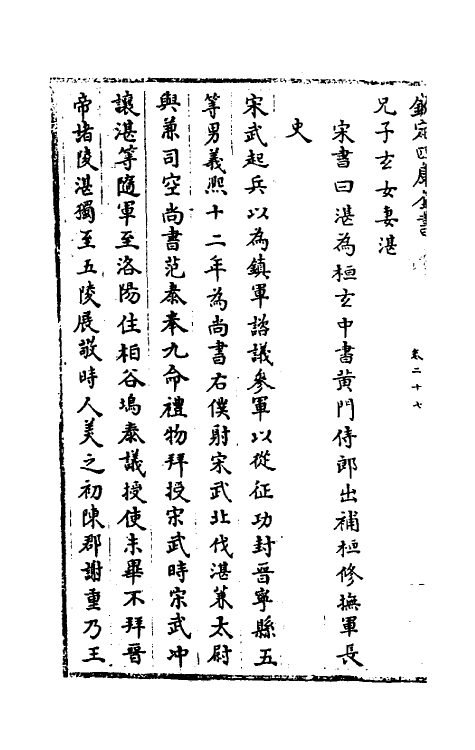 欽定四庫全書
卷二十七
兄子玄女妻湛
宋書曰湛為桓玄中書黃門侍郎出補桓修撫軍長
史
宋武起兵以為鎮軍諮議參軍以從征功封晉寧縣五
等男義熙十二年為尚書右僕射宋武北伐湛兼太尉
與兼司空尚書范泰奉九命禮物拜授宋武時宋武沖
讓湛等隨軍至洛陽住柏谷塢泰議授使未畢不拜晉
帝堵陵湛獨至五陵展敬時人美之初陳郡謝重乃王